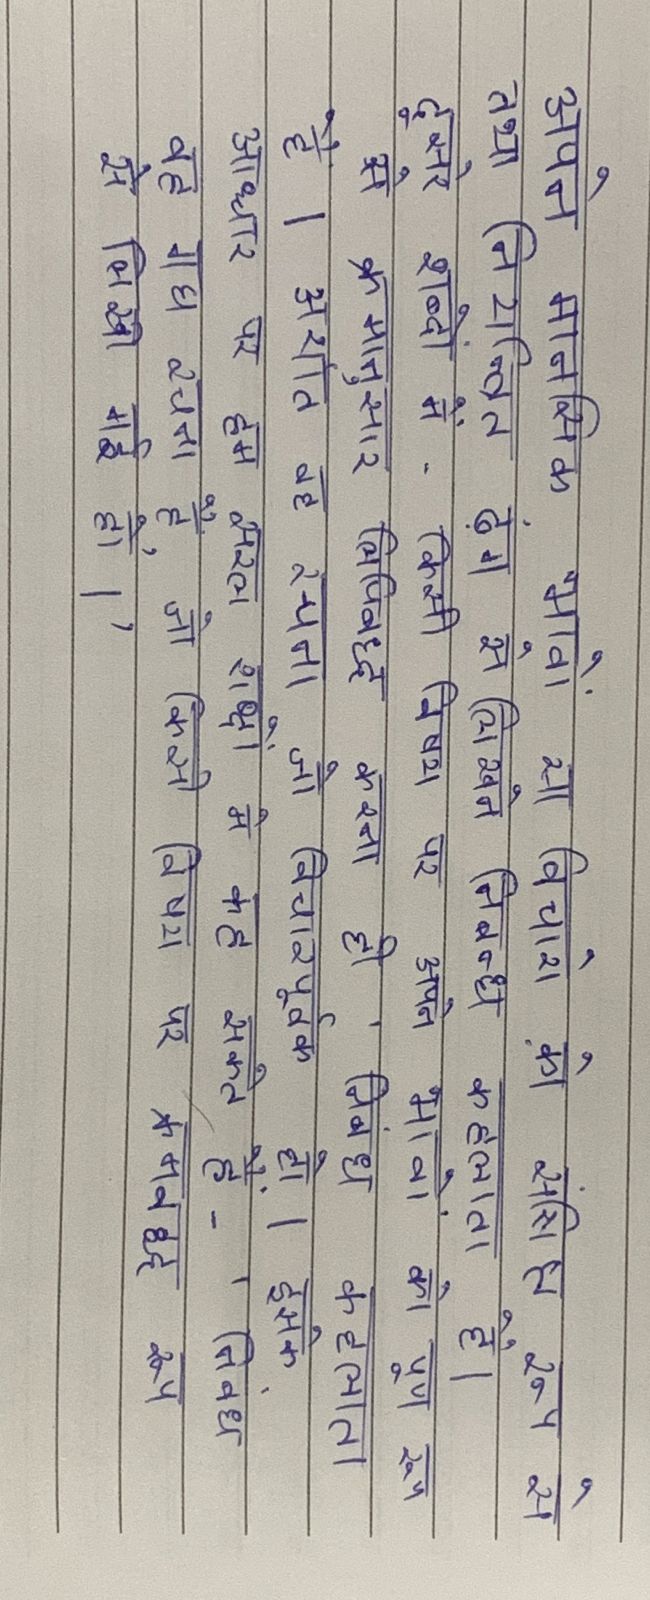 अपने मानसिक भावों या विचारो को संक्षिप्त रूप से
तथा नियन्त्रित ढ़ंग से लिखने निबन्ध कहलाता हैं।
दूसरे शब्दों में - किसी विषय पर अपने भावों को पूण रूप
से क्रमानुसार लिपिबध्द करना ही ' निबंध कहलाता
है । अर्थात वह रचना जो विचारपूर्वक हो । इसके
आधार पर हम सरल शब्दों मे कह सकते हैं - ' निबंध
वह गध रचना है, जो किसी विषय पर क्रमबध्द रूप
से लिखी गई हो ।'